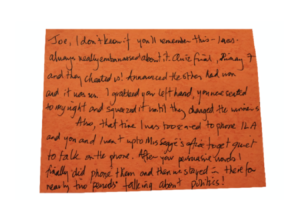 Joe, I don't know if you'll remember this - I was
always really embarrassed about it.
and they cheated us! announced the other had won
and it was us. I grabbed your left hand, you were seated
to my right and squeezed it until they changed the winners
Also, that time I was too scared to phone
and you and I went up to Maggie's after to get quiet
to talk on the phone. After your persuasive words I
finally did phone them and then we stayed in there for
nearly two periods talking about politics!